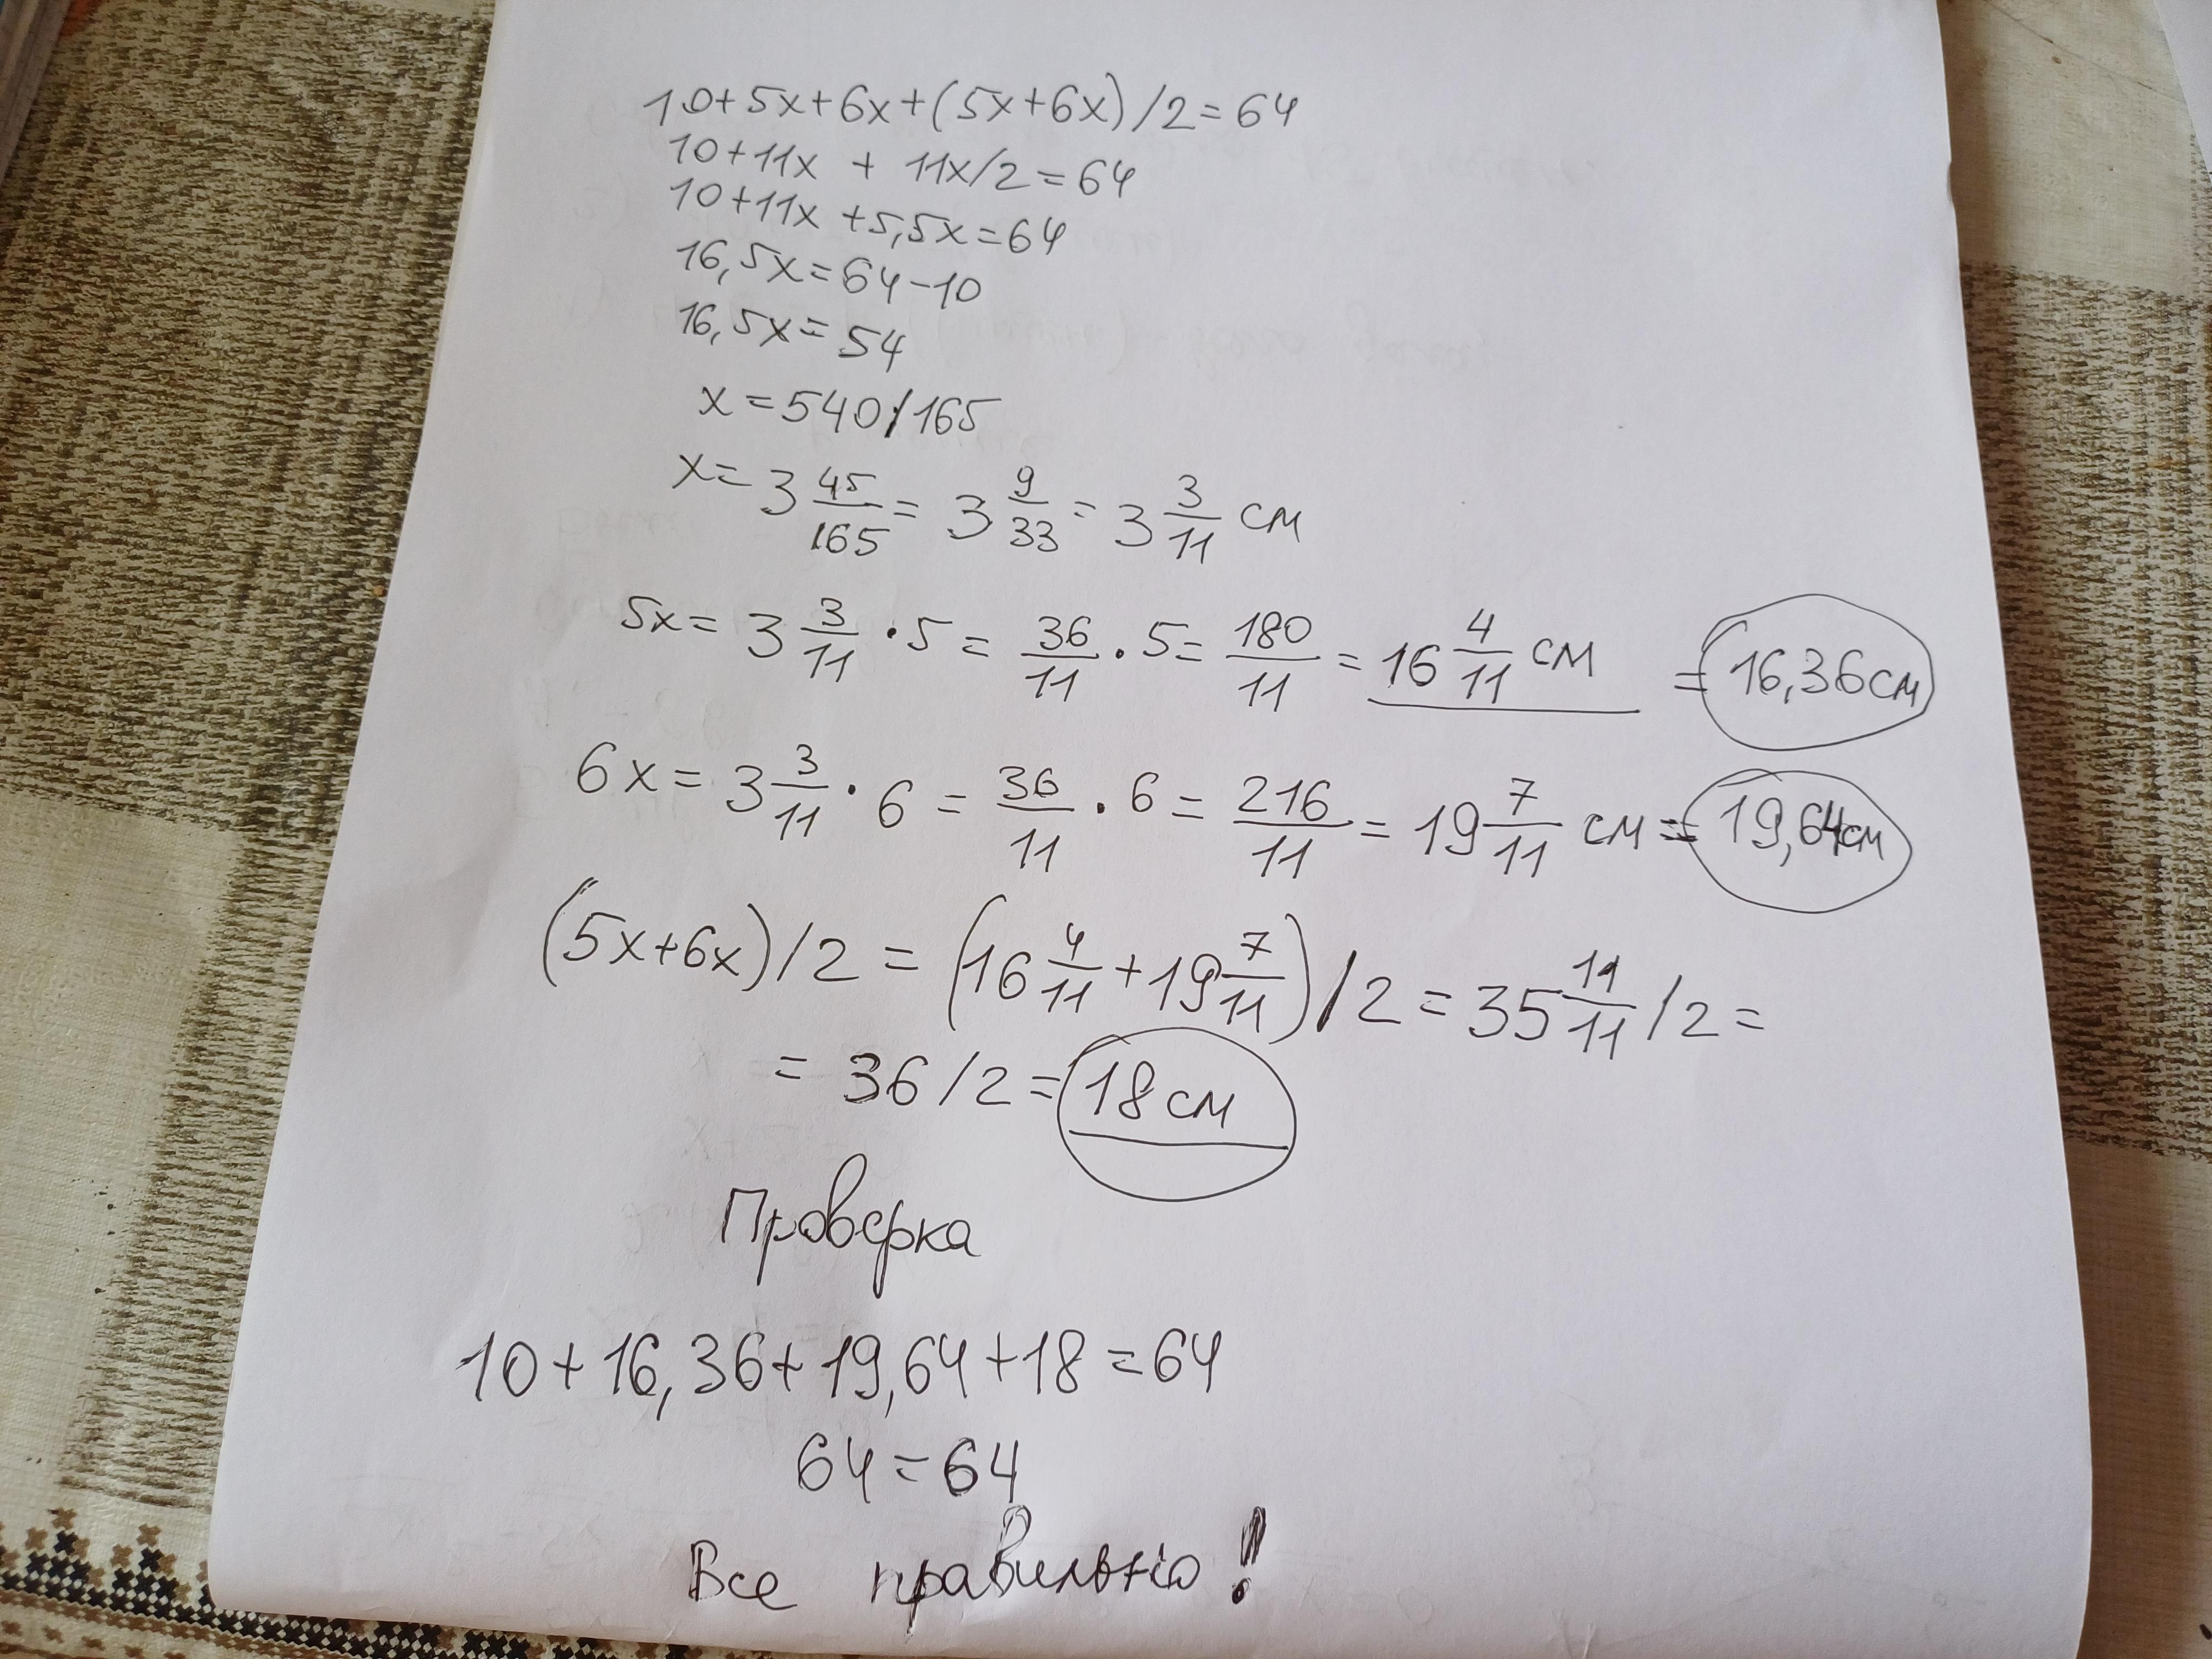 10+5x+6x+(5x+6x)/2=64
10+11x + 11x/2=64
10+11x +5,5x=64
16,5x=64-10
16,5x=54
x=540/165
x=3 45/165 = 3 9/33 = 3 3/11 см
5x= 3 3/11 · 5 = 36/11 · 5 = 180/11 = 16 4/11 см = 16,36см
6x = 3 3/11 · 6 = 36/11 · 6 = 216/11 = 19 7/11 см = 19,64см
(5x+6x)/2 = (16 4/11 + 19 7/11)/2 = 35 11/11 /2 =
= 36/2 = 18 см
Проверка
10+16,36+19,64+18=64
64=64
Все правильно!